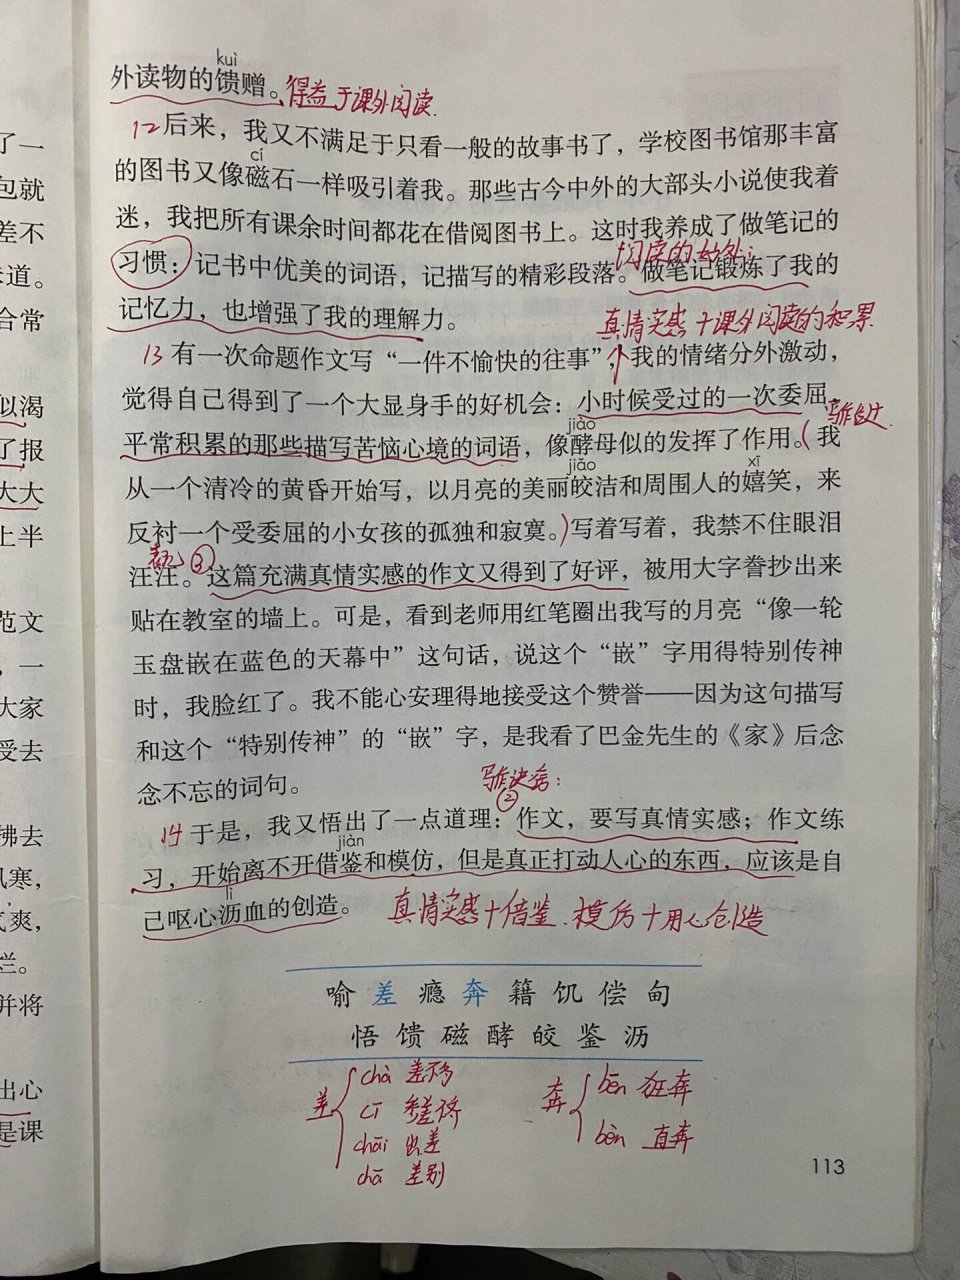 kuì
外读物的馈赠。得益于课外阅读.
12后来，我又不满足于只看一般的故事书了，学校图书馆那丰富
cí
的图书又像磁石一样吸引着我。那些古今中外的大部头小说使我着
迷，我把所有课余时间都花在借阅图书上。这时我养成了做笔记的
阅读的好处：
习惯：记书中优美的词语，记描写的精彩段落。做笔记锻炼了我的
记忆力，也增强了我的理解力。
真情实感+课外阅读的积累
13有一次命题作文写“一件不愉快的往事”，我的情绪分外激动，
觉得自己得到了一个大显身手的好机会：小时候受过的一次委屈、
jiào
平常积累的那些描写苦恼心境的词语，像酵母似的发挥了作用。(我
jiǎo xī
从一个清冷的黄昏开始写，以月亮的美丽皎洁和周围人的嬉笑，来
反衬一个受委屈的小女孩的孤独和寂寞。)写着写着，我禁不住眼泪
③
汪汪。这篇充满真情实感的作文又得到了好评，被用大字誊抄出来
贴在教室的墙上。可是，看到老师用红笔圈出我写的月亮“像一轮
玉盘嵌在蓝色的天幕中”这句话，说这个“嵌”字用得特别传神
时，我脸红了。我不能心安理得地接受这个赞誉——因为这句描写
和这个“特别传神”的“嵌”字，是我看了巴金先生的《家》后念
念不忘的词句。
写作诀窍：
②
14于是，我又悟出了一点道理：作文，要写真情实感；作文练
jiàn
习，开始离不开借鉴和模仿，但是真正打动人心的东西，应该是自
lì
己呕心沥血的创造。真情实感+借鉴、模仿+用心创造
喻 差 瘾 奔 籍 饥 偿 甸
悟 馈 磁 酵 皎 鉴 沥
差 chà 差不多 奔 bēn 狂奔
cī 参差不齐 bèn 直奔
chāi 出差
chā 差别
113
了一
包就
差不
味道。
合常
似渴
了报
大大
上半
范文
，一
大家
受去
拂去
风寒，
气爽，
烂。
并将
出心
是课